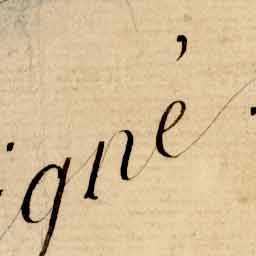 igné